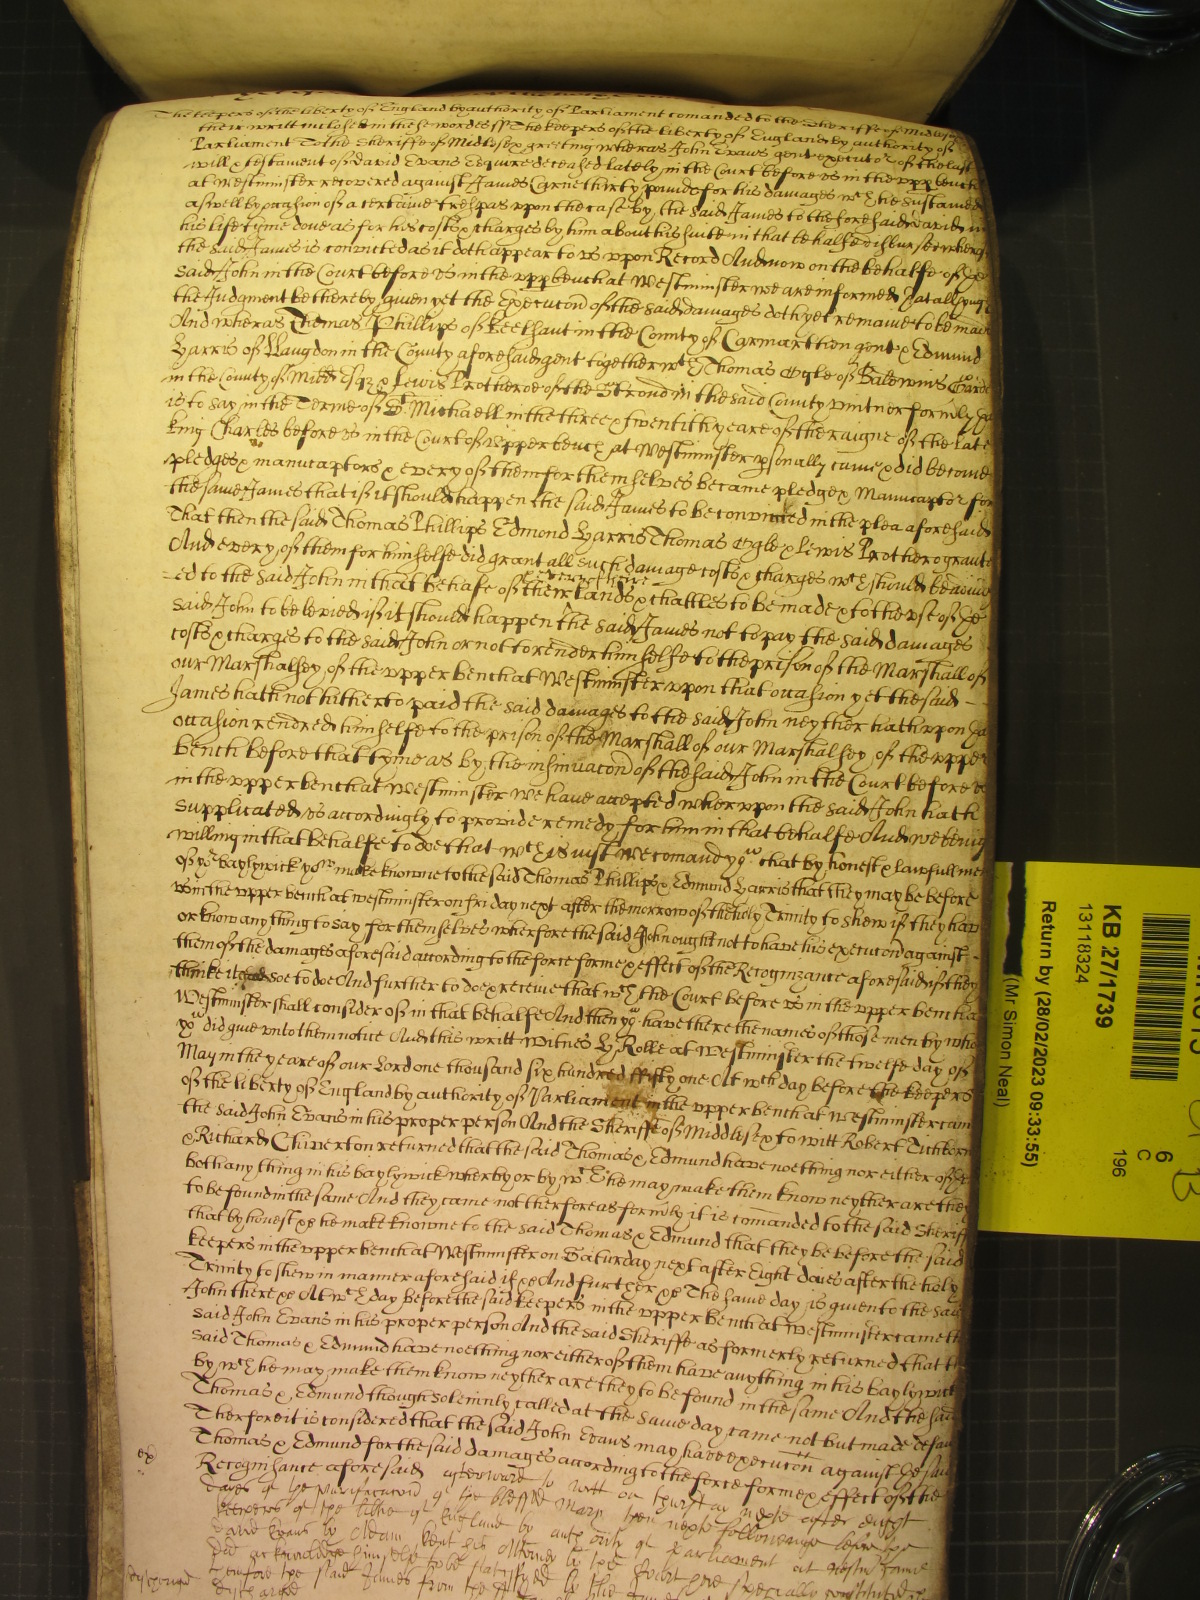 The keepers of the liberty of England by authority of Parliament comanded to the Sheriffe of Middlesex
their writt inclosed in these wordes ss The keepers of the liberty of England by authority of
Parliament To the Sheriffe of Midlesex greeting wheras John Evans gent executor of the last
will & testament of David Evans Esquire deceased lately in the Court before us in the upp bench
at Westminster recovered against James Carne thirty pounds for his damages wch he sustained
aswell by occasion of a certaine trespas upon the case by the said James to the foresaid David in
his life tyme done as for his costs & charges by him about his suite in that behalfe disbursed wherof
the said James is convicted as it doth appear to us upon Record And now on the behalfe of the
said John in the Court before us in the upp bench at Westminster we are informed that although
the Judgment be thereby given yet the Execucon of the said damages doth yet remaine to be made
And wheras Thomas Phillips of in the County of Carmarthen gent & Edmund
Harris of Llangdon in the County aforesaid gent together wth Thomas Ogle of Baldwins Garde
in the County of Midd Esqr & Lewis Protheroe of the Strond in the said County vintner formly
is to say in the Terme of St Michaell in the three & twentith yeare of the raigne of the late
King Charles before us in the Court of Upper bench at Westminster psonally came & did become
pledges & manucaptors & every of them for themselves became pledge & Manucaptor for
the same James that if it should happen the said James to be convicted in the plea aforesaid
That then the said Thomas Phillips Edmond Harris Thomas Ogle & Lewis Prothero graunted
And every of them for himselfe did grant all such damage costs & charges wch should be adiudg
-ed to the said John in that behafe of their & every of their Lands & chattles to be made & to the use of the
said John to be levied if it should happen the said James not to pay the said damages
costs & charges to the said John or not to render himselfe to the prison of the Marshall of
our Marshalsey of the upper bench at Westminster upon that occasion yet the said -
James hath not hitherto paid the said damages to the said John neyther hath upon that
occasion rendred himselfe to the prison of the Marshall of our Marshalsey of the upper
bench before that tyme as by the insinuacon of the said John in the Court before us
in the upper bench at Westminster we have accepted wherupon the said John hath
supplicated us accordingly to provide remedy for him in that behalfe And we being
willing in that behalfe to doe that wch is iust We comand you that by honest & lawfull men
of yor baylywick you make knowne to the said Thomas Phillips & Edmund Harris that they may be before
us in the upper bench at westminster on friday next after the morrow of the holy Trinity to shew if they have
or know any thing to say for themselves wherfore the said John ought not to have his execucon against -
them of the damages aforesaid according to the force forme & effect of the Recognizance aforesaid if they
thinke it soe to doe And further to doe & receive that wch the Court before us in the upper bench at
Westminster shall consider of in that behalfe And then you have there the names of those men by whom
you did give unto them notice And this writt Witnes H Rolle at Westminster the twelfe day of
May in the yeare of our Lord one thousand six hundred ffifty one At wch day before the keepers
of the liberty of England by authority of Parliament in the upper bench at Westminster came
the said John Evans in his proper person And the Sheriffe of Middlesex to witt Robert Tichborn
& Richard Chiverton returned that the said Thomas & Edmund have noething nor either of them
hath any thing in his baylywick wherby or by wch he may make them know neyther are they
to be found in the same And they came not therfore as formly it is comanded to the said Sheriff
that by honest &c he make knowne to the said Thomas & Edmund that they be before the said
keepers in the upper bench at Westminster on Saturday next after Eight daies after the holy
Trinity to shew in manner aforesaid if &c And further &c The same day is given to the said
John there &c At wch day before the said keepers in the upper bench at Westminster came the
said John Evans in his proper person And the said Sheriffe as formerly returned that the
said Thomas & Edmund have noething nor either of them have any thing in his baylywick
by wch he may make them know neyther are they to be found in the same And the said
Thomas & Edmund though solemnly called at the same day came not but made defau
Therfore it is considered that the said John Evans may have execucon against the said
Thomas & Edmund for the said damages according to the force forme & effect of the
ex
Recognisance aforesaid afterward to witt on thursday next after eight
daies of the purificacon of the blessed Mary then next followinge before the
keepers of the libtie of England by authority of Parliament at Westm came
David Evans by his Attorney by the Court here specially constituted &
did acknowledge himselfe to be satisfyed by the
therfore the said James from the
discharged
discharged
KB 27/1739
13118324
Return by (28/02/2023 09:33:55)
(Mr Simon Neal)
6
C
196